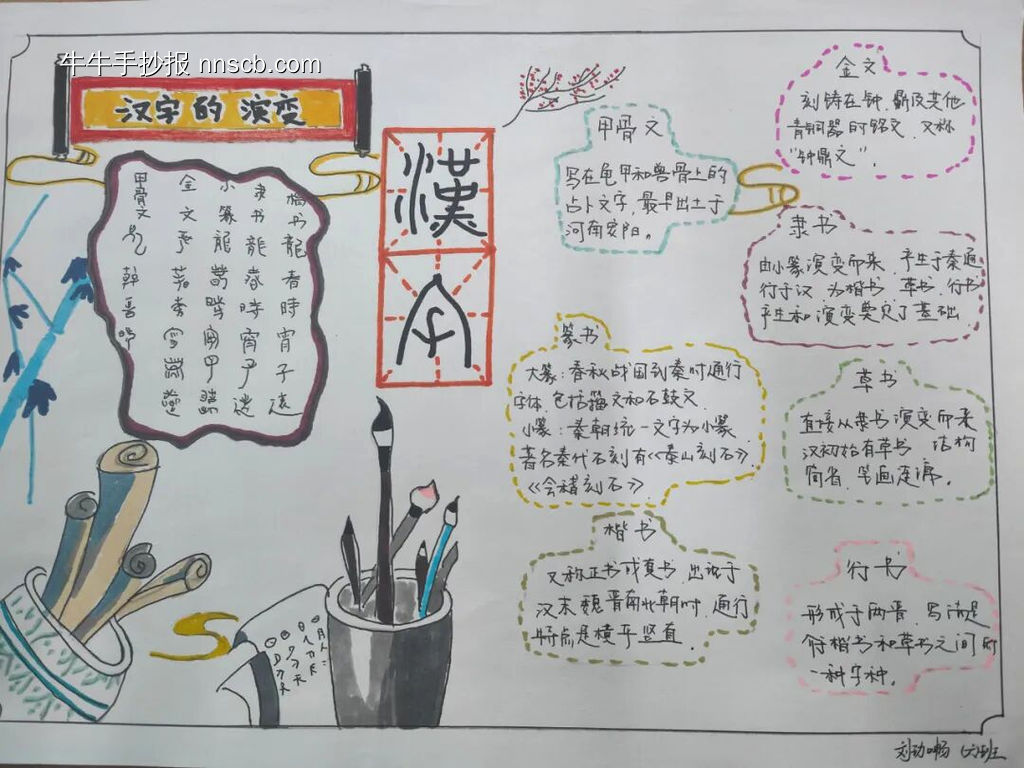 牛牛手抄报 nnscb.com
汉字的演变
甲骨文
金文
小篆龍
隶书龍春時宵子
楷书龍春時宵子遠
漢
字
甲骨文
写在龟甲和兽骨上的
占卜文字，最早出土于
河南安阳。
金文
刻铸在钟、鼎及其他
青铜器的铭文，又称
“钟鼎文”。
隶书
由小篆演变而来，产生于秦通
行于汉，为楷书、草书、行书
产生和演变奠定了基础
篆书
大篆：春秋战国到秦时通行
字体，包括籀文和石鼓文
小篆：秦朝统一文字为小篆
著名秦代石刻有《泰山刻石》
《会稽刻石》
草书
直接从隶书演变而来
汉初始有草书，结构
简省，笔画连绵。
楷书
又称正书或真书，出现于
汉末，魏晋南北朝时，通行
特点是横平竖直
行书
形成于两晋，写法是
介楷书和草书之间的
一种字种。
六班